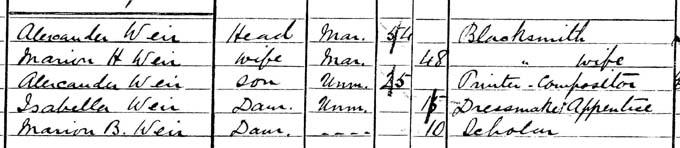 Alexander Weir Head Mar. 54 Blacksmith
Marion H Weir Wife Mar. 48 " wife
Alexander Weir son Unm. 25 Printer-Compositor
Isabella Weir Daur. Unm. 15 Dressmaker Apprentice
Marion B. Weir Daur. ---- 10 Scholar